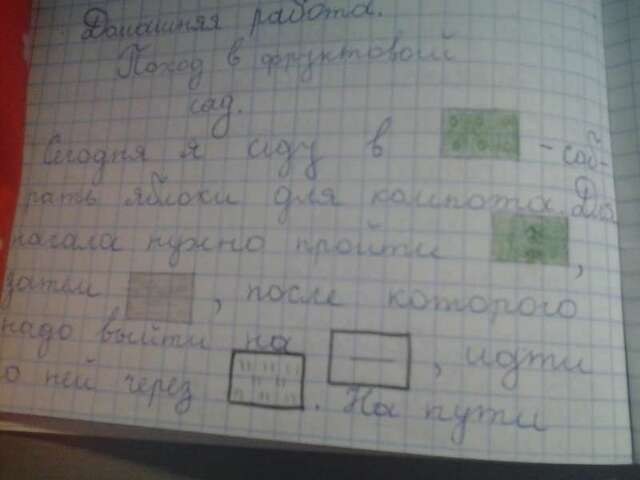 Домашняя работа.
Поход в фруктовый
сад.
Сегодня я иду в - соб-
рать яблоки для компота. Д
начала нужно пройти ,
затем , после которого
надо выйти на , идти
о ней через . На пути